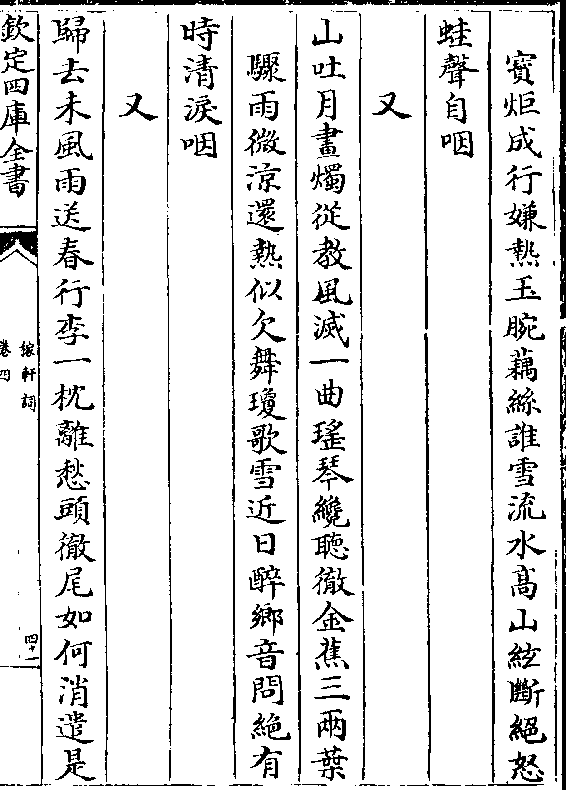 寳炬成行嫌熱玉腕藕絲誰雪流水髙山絃斷絕怒
蛙聲自咽
又
山吐月畫燭從教風滅一曲瑤琴纔聽徹金蕉三兩葉
驟雨微涼還熱似欠舞瓊歌雪近日醉鄉音問絶有
時清淚咽
又
歸去未風雨送春行李一枕離愁頭徹尾如何消遣是
欽定四庫全書
稼軒詞
卷四
四十一